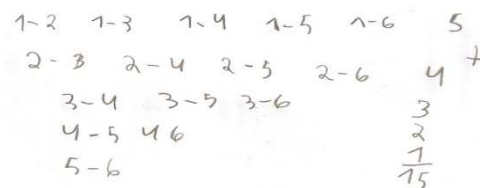 1-2 1-3 1-4 1-5 1-6 5
2-3 2-4 2-5 2-6 4 +
3-4 3-5 3-6 3
4-5 46 2
5-6 1
15